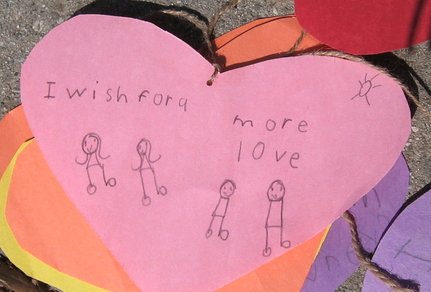 I wish for a
more
love